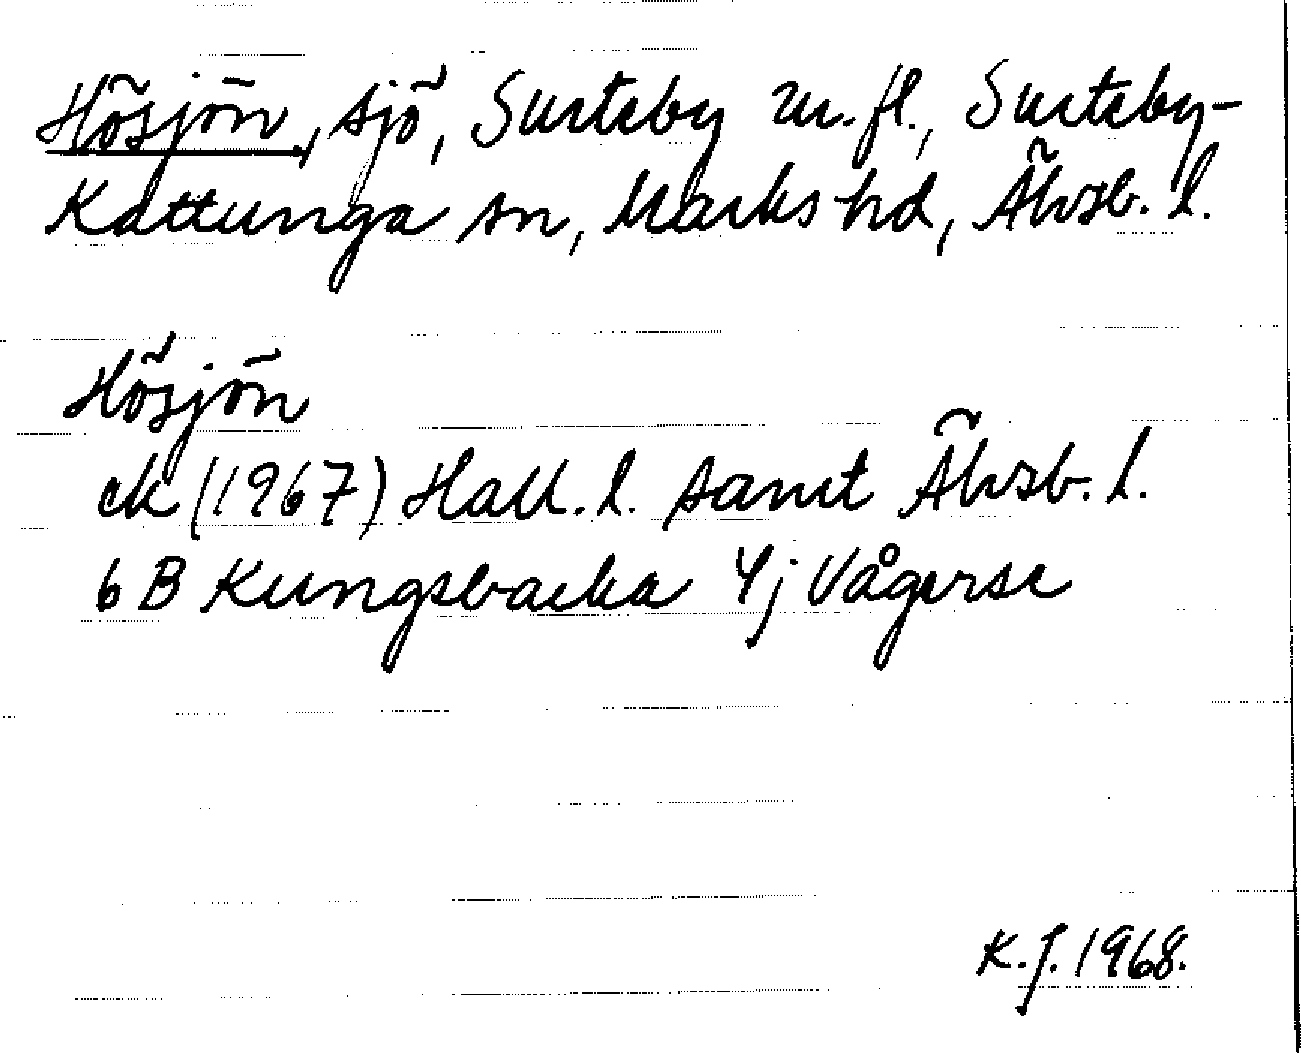 Hösjön, sjö, Surteby m.fl., Surteby-
Kattunga sn, Marks hd, Älvsb. l.
Hösjön
ek (1967) Hall. l. samt Älvsb. l.
6 B Kungsbacka 4j Vågerse
K.J. 1968.